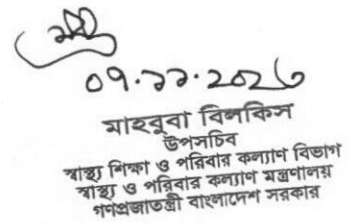 ০৭.১১.২০২৩
মাহবুবা বিলকিস
উপসচিব
স্বাস্থ্য শিক্ষা ও পরিবার কল্যাণ বিভাগ
স্বাস্থ্য ও পরিবার কল্যাণ মন্ত্রণালয়
গণপ্রজাতন্ত্রী বাংলাদেশ সরকার